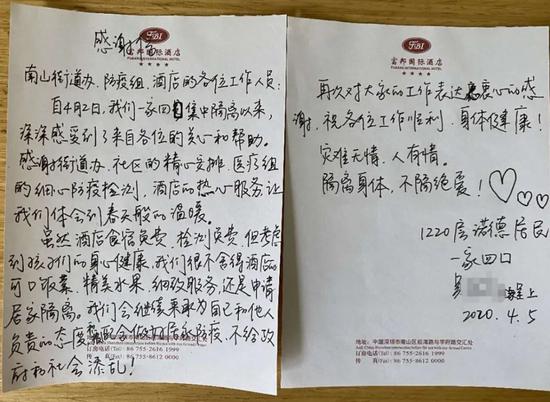 FBI
富邦国际酒店
FUBANG INTERNATIONAL HOTEL
★★★★
感谢信
南山街道办、防疫组、酒店的各位工作人员:
自4月2日,我们一家四口集中隔离以来,
深深感受到了来自各位的关心和帮助。
感谢街道办、社区的精心安排、医疗组
的细心防疫检测、酒店的热心服务让
我们体会到春天般的温暖。
虽然酒店食宿免费、检测免费,但考虑
到孩子们的身心健康,我们很不舍得酒店的
可口饭菜、精美水果、细致服务,还是申请
居家隔离。我们会继续秉承为自己和他人
负责的态度,配合做好居家防疫,不给政
府和社会添乱!
订房电话(Tel): 86 755-2616 1999
传 真(Fax): 86 755-8612 0000
FBI
富邦国际酒店
FUBANG INTERNATIONAL HOTEL
★★★★
再次对大家的工作表达衷心的感
谢,祝各位工作顺利、身体健康!
灾难无情、人有情。
隔离身体,不隔绝爱!
1220房诺德居民
一家四口
呈上
2020.4.5
地址: 中国深圳市南山区临海路与学府路交汇处
订房电话(Tel): 86 755-2616 1999
传 真(Fax): 86 755-8612 0000